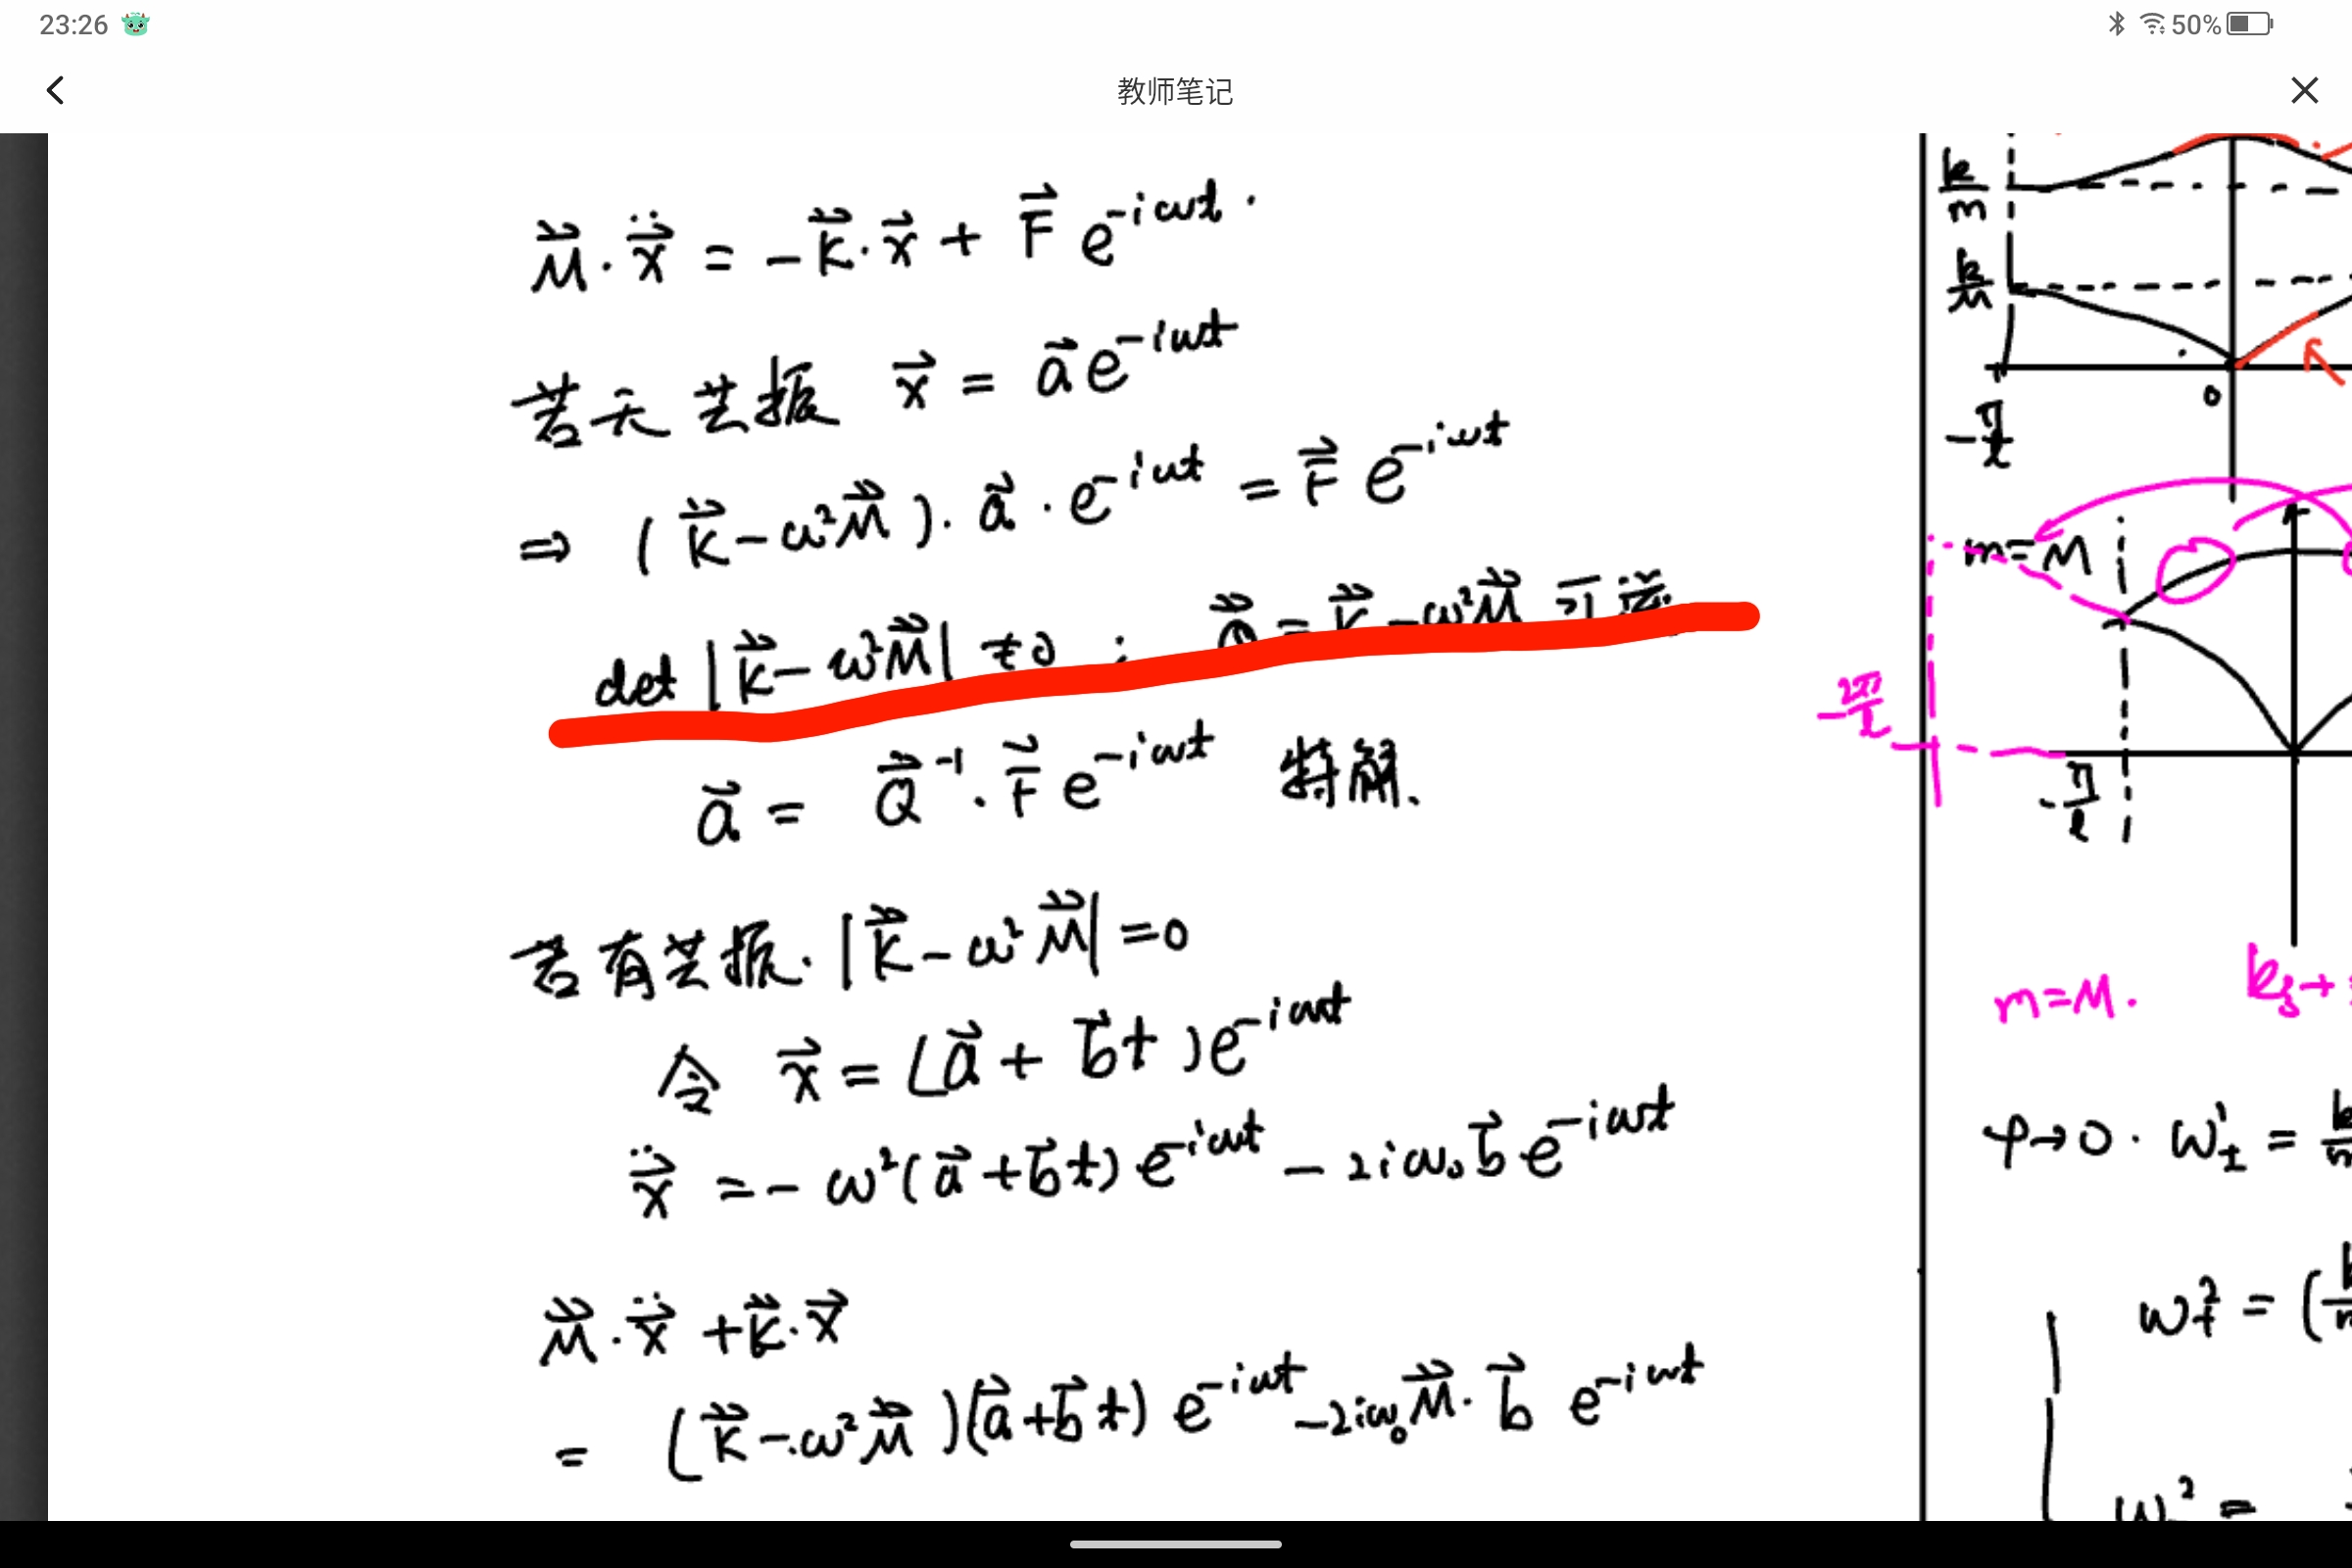 23:26
50%
教师笔记
M⃡·ẍ⃗ = -k⃡·x⃗ + F⃗ e^{-iωt}.
若无共振 x⃗ = a⃗ e^{-iωt}
⇒ (k⃡ - ω²M⃡)·a⃗·e^{-iωt} = F⃗ e^{-iωt}
det |k⃡ - ω²M⃡| ≠ 0 ; Q⃡ = k⃡ - ω²M⃡ 可逆
a⃗ = Q⃡⁻¹·F⃗ e^{-iωt} 特解.
若有共振. |k⃡ - ω²M⃡| = 0
令 x⃗ = (a⃗ + b⃗t) e^{-iωt}
ẍ⃗ = - ω²(a⃗ + b⃗t) e^{-iωt} - 2iω₀b⃗ e^{-iωt}
M⃡·ẍ⃗ + k⃡·x⃗
= (k⃡ - ω²M⃡)(a⃗ + b⃗t) e^{-iωt} - 2iω₀M⃡·b⃗ e^{-iωt}
k/m
k/M
0
-π/l
m=M
-2π/l
-π/l
m=M.
φ→0. ω
ω² = (
ω² =